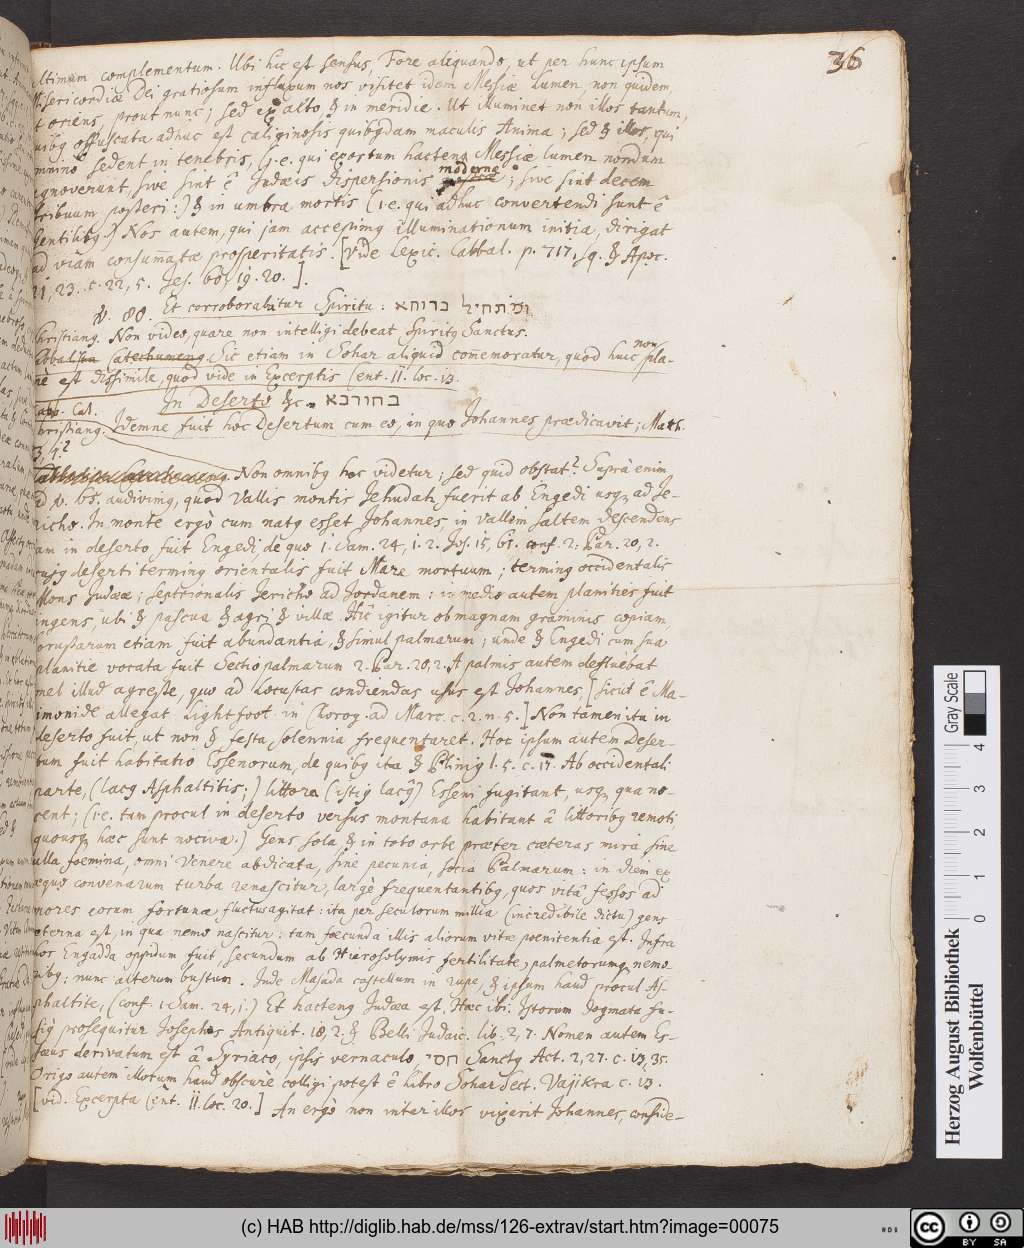 36
ultimum complementum. Ubi hic est sensus, Fore aliquando, ut per hunc ipsum
Misericordiæ Dei gratiosum influxum nos visitet idem Messiæ lumen, non quidem
ut oriens, prout nunc; sed ex alto & in meridie. Ut illuminet non illos tantum,
quibg offuscata adhuc est caliginosis quibgdam maculis Anima; sed & illos, qui
omnino sedent in tenebris, (i.e. qui exortum hacteng Messiæ lumen nondum
agnoverunt, sive sint è Judæis dispersionis modernæ; sive sint decem
tribuum posteri:) & in umbra mortis (i.e. qui adhuc convertendi sunt è
Gentilibg.) Nos autem, qui jam accepimg illuminationum initia, dirigat
ad viam consumatæ prosperitatis. [Vide Lexic. Cabbal. p. 717, sq. & Apoc.
21, 23. c. 22, 5. Jes. 60, 19. 20.].
v. 80. Et corroborabitur Spiritu: ומתחיל ברוחא
Christiang. Non video, quare non intelligi debeat Spiritg Sanctus.
Cabbalista Catechumeng. Sic etiam in Sohar aliquid commemoratur, quod huic non pla-
nè est dissimile, quod vide in Excerptis Cent. II. loc. 13.
Cabb. Cat. In Deserto &c. בחורבא
Christiang. Idemne fuit hoc Desertum cum eo, in quo Johannes prædicavit; Matth.
3, 1.?
Non omnibg hoc videtur; sed quid obstat? Suprà enim
ad v. 65. audivimg, quod Vallis montis Jehudah fuerit ab Engedi usq, ad Je-
richo. In monte ergò cum natg esset Johannes, in vallem saltem descendens
jam in deserto fuit Engedi, de quo 1. Sam. 24, 1. 2. Jos. 15, 61. conf. 2. Par. 20, 2.
cujg deserti terming orientalis fuit Mare mortuum; terming occidentalis
Mons Judææ; septrionalis Jericho ad Jordanem: in medio autem planities fuit
ingens, ubi & pascua & agri & villæ. Hîc igitur ob magnam graminis copiam,
brussarum etiam fuit abundantia, & simul palmarum; unde & Engedi cum sua
planitie vocata fuit Sectio palmarum 2. Par. 20, 2. A palmis autem defluebat
mel illud agreste, quo ad Locustas condiendas usus est Johannes, [sicut è Ma-
imonide allegat Lightfoot. in Chorog. ad Marc. c. 2. n. 5.] Non tamen ita in
deserto fuit, ut non & festa solennia frequentaret. Hoc ipsum autem Deser-
tum fuit habitatio Essenorum, de quibg ita & Plinig l. 5. c. 17. Ab occidentali
parte, (lacg Asphaltitis:) littora (istig lacg) Esseni fugitant, usq, qua no-
cent; (i.e. tam procul in deserto versus montana habitant â littoribg remoti,
quousq, hæc sunt nociva.) Gens sola & in toto orbe præter cæteras mira, sine
ulla foemina, omni Venere abdicata, sine pecunia, socia Palmarum: in diem ex
æquo convenarum turba renascitur, largè frequentantibg, quos vitâ fessos ad
mores eorum fortunæ fluctus agitat: ita per seculorum millia (incredibile dictu) gens
æterna est, in qua nemo nascitur: tam fæcunda illis aliorum vitæ poenitentia est. Infra
hos Engadda oppidum fuit, secundum ab Hierosolymis fertilitate, palmetorumq, nemo-
ribg: nunc alterum bustum. Inde Masada castellum in rupe, & ipsum haud procul As-
phaltite, (conf. 1 Sam. 24, 1.) Et hacteng Judæa est. Hæc ibi. Istorum dogmata fu-
sig prosequitur Josephus Antiquit. 18, 2. & Belli Judaic. lib. 2, 7. Nomen autem Es-
sæus derivatum est â Syriaco, ipsis vernaculo חסי Sanctg Act. 2, 27. c. 13, 35.
Origo autem illorum haud obscurè colligi potest è libro Sohar Sect. Vajikra c. 13.
[vid. Excerpta Cent. II. loc. 20.] An ergò non inter illos vixerit Johannes, conside-
Herzog August Bibliothek
Wolfenbüttel
Gray Scale
0 1 2 3 4
(c) HAB http://diglib.hab.de/mss/126-extrav/start.htm?image=00075
cc BY SA